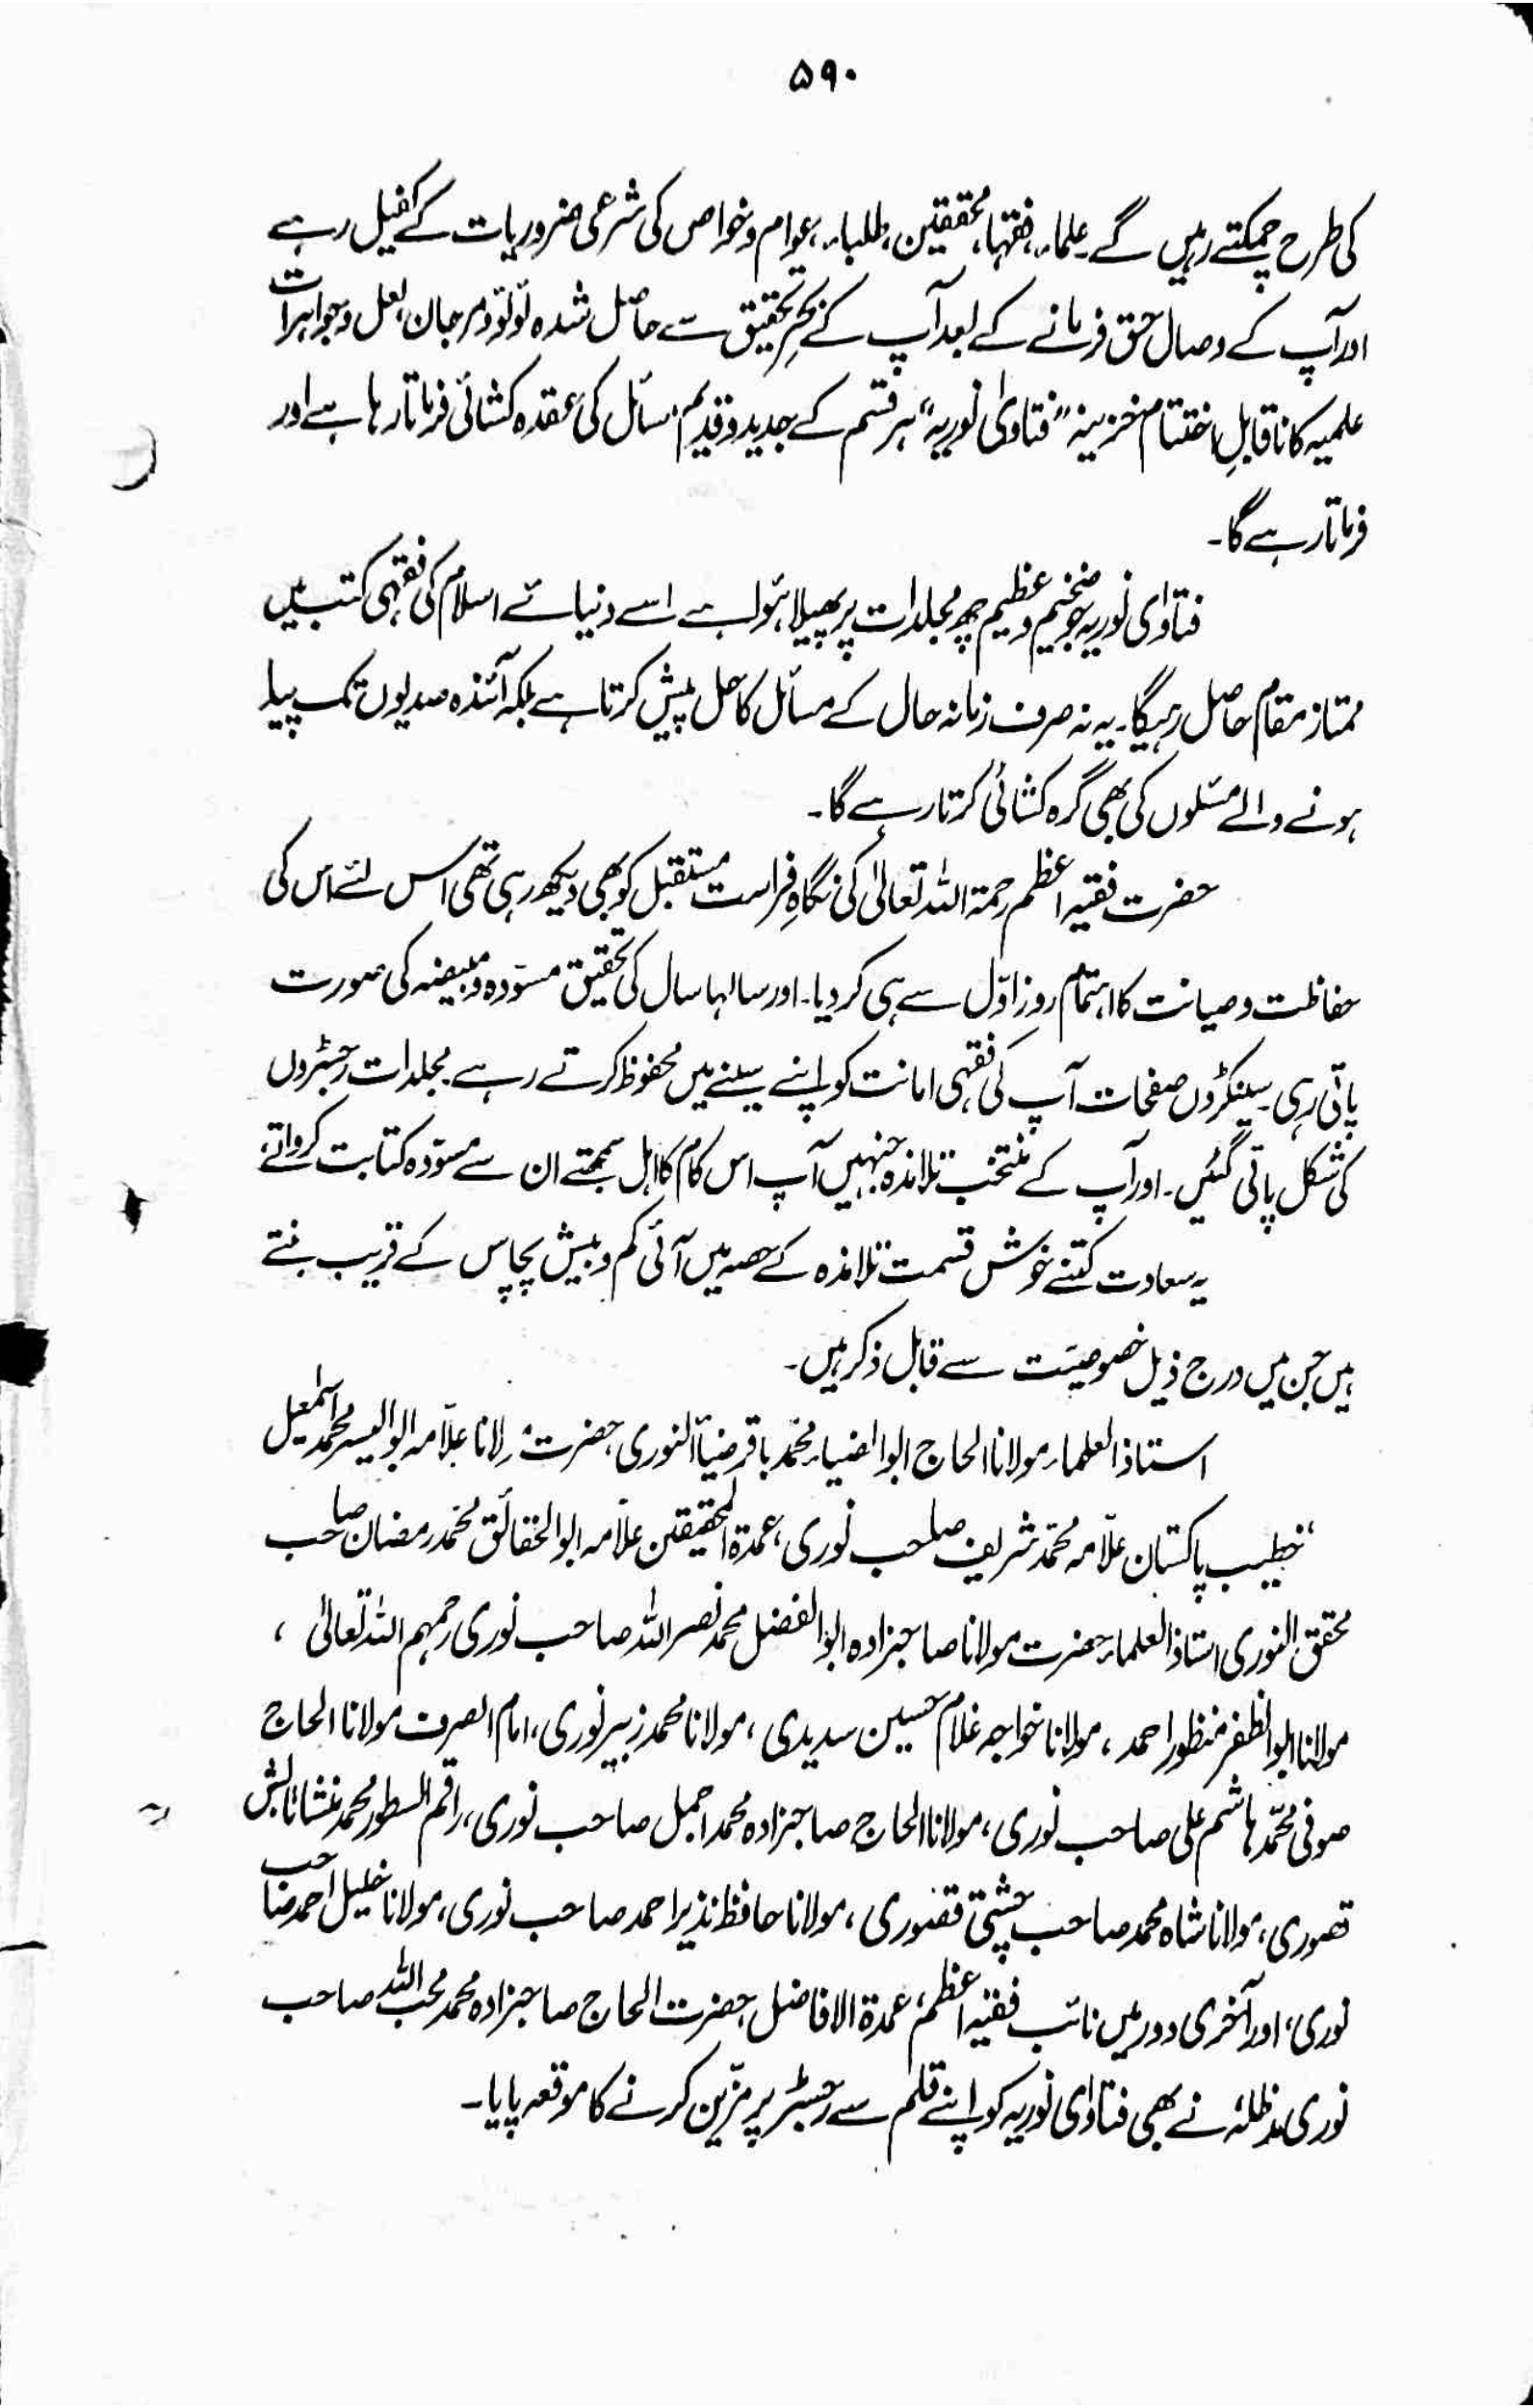 ۵۹۰
کی طرح چمکتے رہیں گے۔ علماء، فقہا، محققین، طلباء، عوام و خواص کی شرعی ضروریات کے کفیل رہے
اور آپ کے وصال حق فرمانے کے بعد آپ کے بحرِ تحقیق سے حاصل شدہ لؤلؤ و مرجان، لعل و جواہرات
علمیہ کا ناقابلِ اختتام خزینہ "فتاویٰ نوریہ" ہر قسم کے جدید و قدیم مسائل کی عقدہ کشائی فرماتا رہا ہے اور
فرماتا رہے گا۔
فتاویٰ نوریہ جو ضخیم و عظیم چھ مجلدات پر پھیلا ہؤا ہے اسے دنیائے اسلام کی فقہی کتب میں
ممتاز مقام حاصل رہیگا۔ یہ نہ صرف زمانہ حال کے مسائل کا حل پیش کرتا ہے بلکہ آئندہ صدیوں تک پیدا
ہونے والے مسئلوں کی بھی گرہ کشائی کرتا رہے گا۔
حضرت فقیہ اعظم رحمۃ اللہ تعالیٰ کی نگاہِ فراست مستقبل کو بھی دیکھ رہی تھی اس لئے اس کی
حفاظت و صیانت کا اہتمام روز اوّل سے ہی کر دیا۔ اور سالہا سال کی تحقیق مسوّدہ و مبیضہ کی صورت
پاتی رہی۔ سینکڑوں صفحات آپ کی فقہی امانت کو اپنے سینے میں محفوظ کرتے رہے۔ مجلدات رجسٹروں
کی شکل پاتی گئیں۔ اور آپ کے منتخب تلامذہ جنہیں آپ اس کام کا اہل سمجھتے ان سے مسوّدہ کتابت کرواتے
یہ سعادت کتنے خوش قسمت تلامذہ کے حصہ میں آئی کم و بیش پچاس کے قریب بنتے
ہیں جن میں درج ذیل خصوصیّت سے قابل ذکر ہیں۔
استاذ العلماء مولانا الحاج ابوالضیاء محمّد باقر ضیاؔ النوری، حضرت مولانا علاّمہ ابوالیسر محمد اسمٰعیل
خطیب پاکستان علاّمہ محمّد شریف صاحب نوری، عمدۃ المحققین علاّمہ ابوالحقائق محمد رمضان صاحب
محقق النوری استاذ العلماء حضرت مولانا صاحبزادہ ابوالفضل محمد نصر اللہ صاحب نوری رحمہم اللہ تعالیٰ ،
مولانا ابوالظفر منظور احمد ، مولانا خواجہ غلام حسین سدیدی ، مولانا محمد زبیر نوری، امام الصرف مولانا الحاج
صوفی محمّد ہاشم علی صاحب نوری، مولانا الحاج صاحبزادہ محمد اجمل صاحب نوری، راقم السطور محمد منشا تابش
قصوری، مولانا شاہ محمد صاحب چشتی قصوری ، مولانا حافظ نذیر احمد صاحب نوری، مولانا خلیل احمد صاحب
نوری، اور آخری دور میں نائب فقیہ اعظم، عمدۃ الافاضل، حضرت الحاج صاحبزادہ محمد محب اللہ صاحب
نوری مدظلہٗ نے بھی فتاویٰ نوریہ کو اپنے قلم سے رجسٹر پر مزّین کرنے کا موقعہ پایا۔